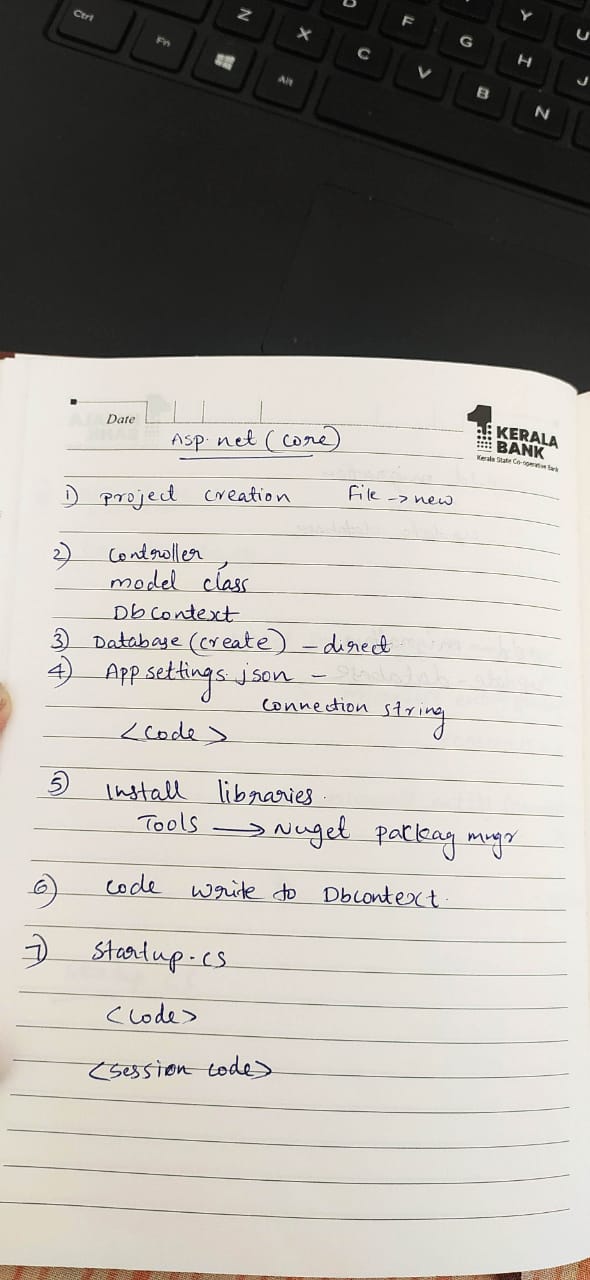 Ctrl
Fn
Alt
Z
X
C
F
V
G
B
Y
H
N
U
J
Date
KERALA
BANK
Kerala State Co-operative Bank
Asp.net (core)
1) project creation File -> new
2) Controller,
model class
Dbcontext
3) Database (create) - direct
4) App settings.json -
Connection string
<code>
5) Install libraries.
Tools → Nuget packag mngr
6) code write to Dbcontext.
7) Startup.cs
<code>
<session code>